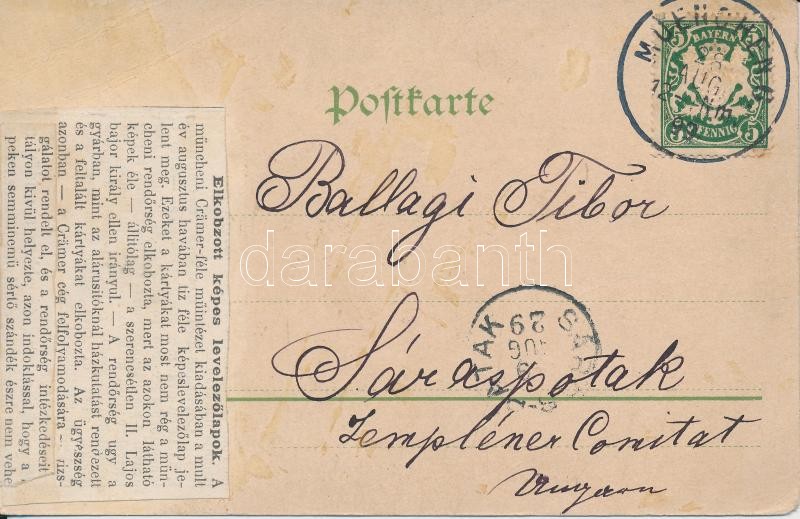 Postkarte
BAYERN
5 5
5 5
PFENNIG
MUENCHEN
28
AUG
12
99
Ballagi Tibor
Sáraspotak
Zempléner Comitat
Ungarn
29
AUG
darabanth
Elkobzott képes levelezőlapok. A
müncheni Crämer-féle müintézet kiadásában a mult
év augusztus havában tiz féle képeslevelezőlap je-
lent meg. Ezeket a kártyákat most nem rég a mün-
cheni rendőrség elkobozta, mert az azokon látható
képek éle — állitólag — a szerencsétlen II. Lajos
bajor király ellen irányul. — A rendőrség ugy a
gyárban, mint az alárusitóknál házkutatást rendezett
és a feltalált kártyákat elkobozta. Az ügyészség
azonban — a Crämer cég felfolyamodására — vizs-
gálatot rendelt el, és a rendőrség intézkedéseit
tályon kivül helyezte, azon indoklással, hogy a
peken semminemü sértő szándék észre nem vehe